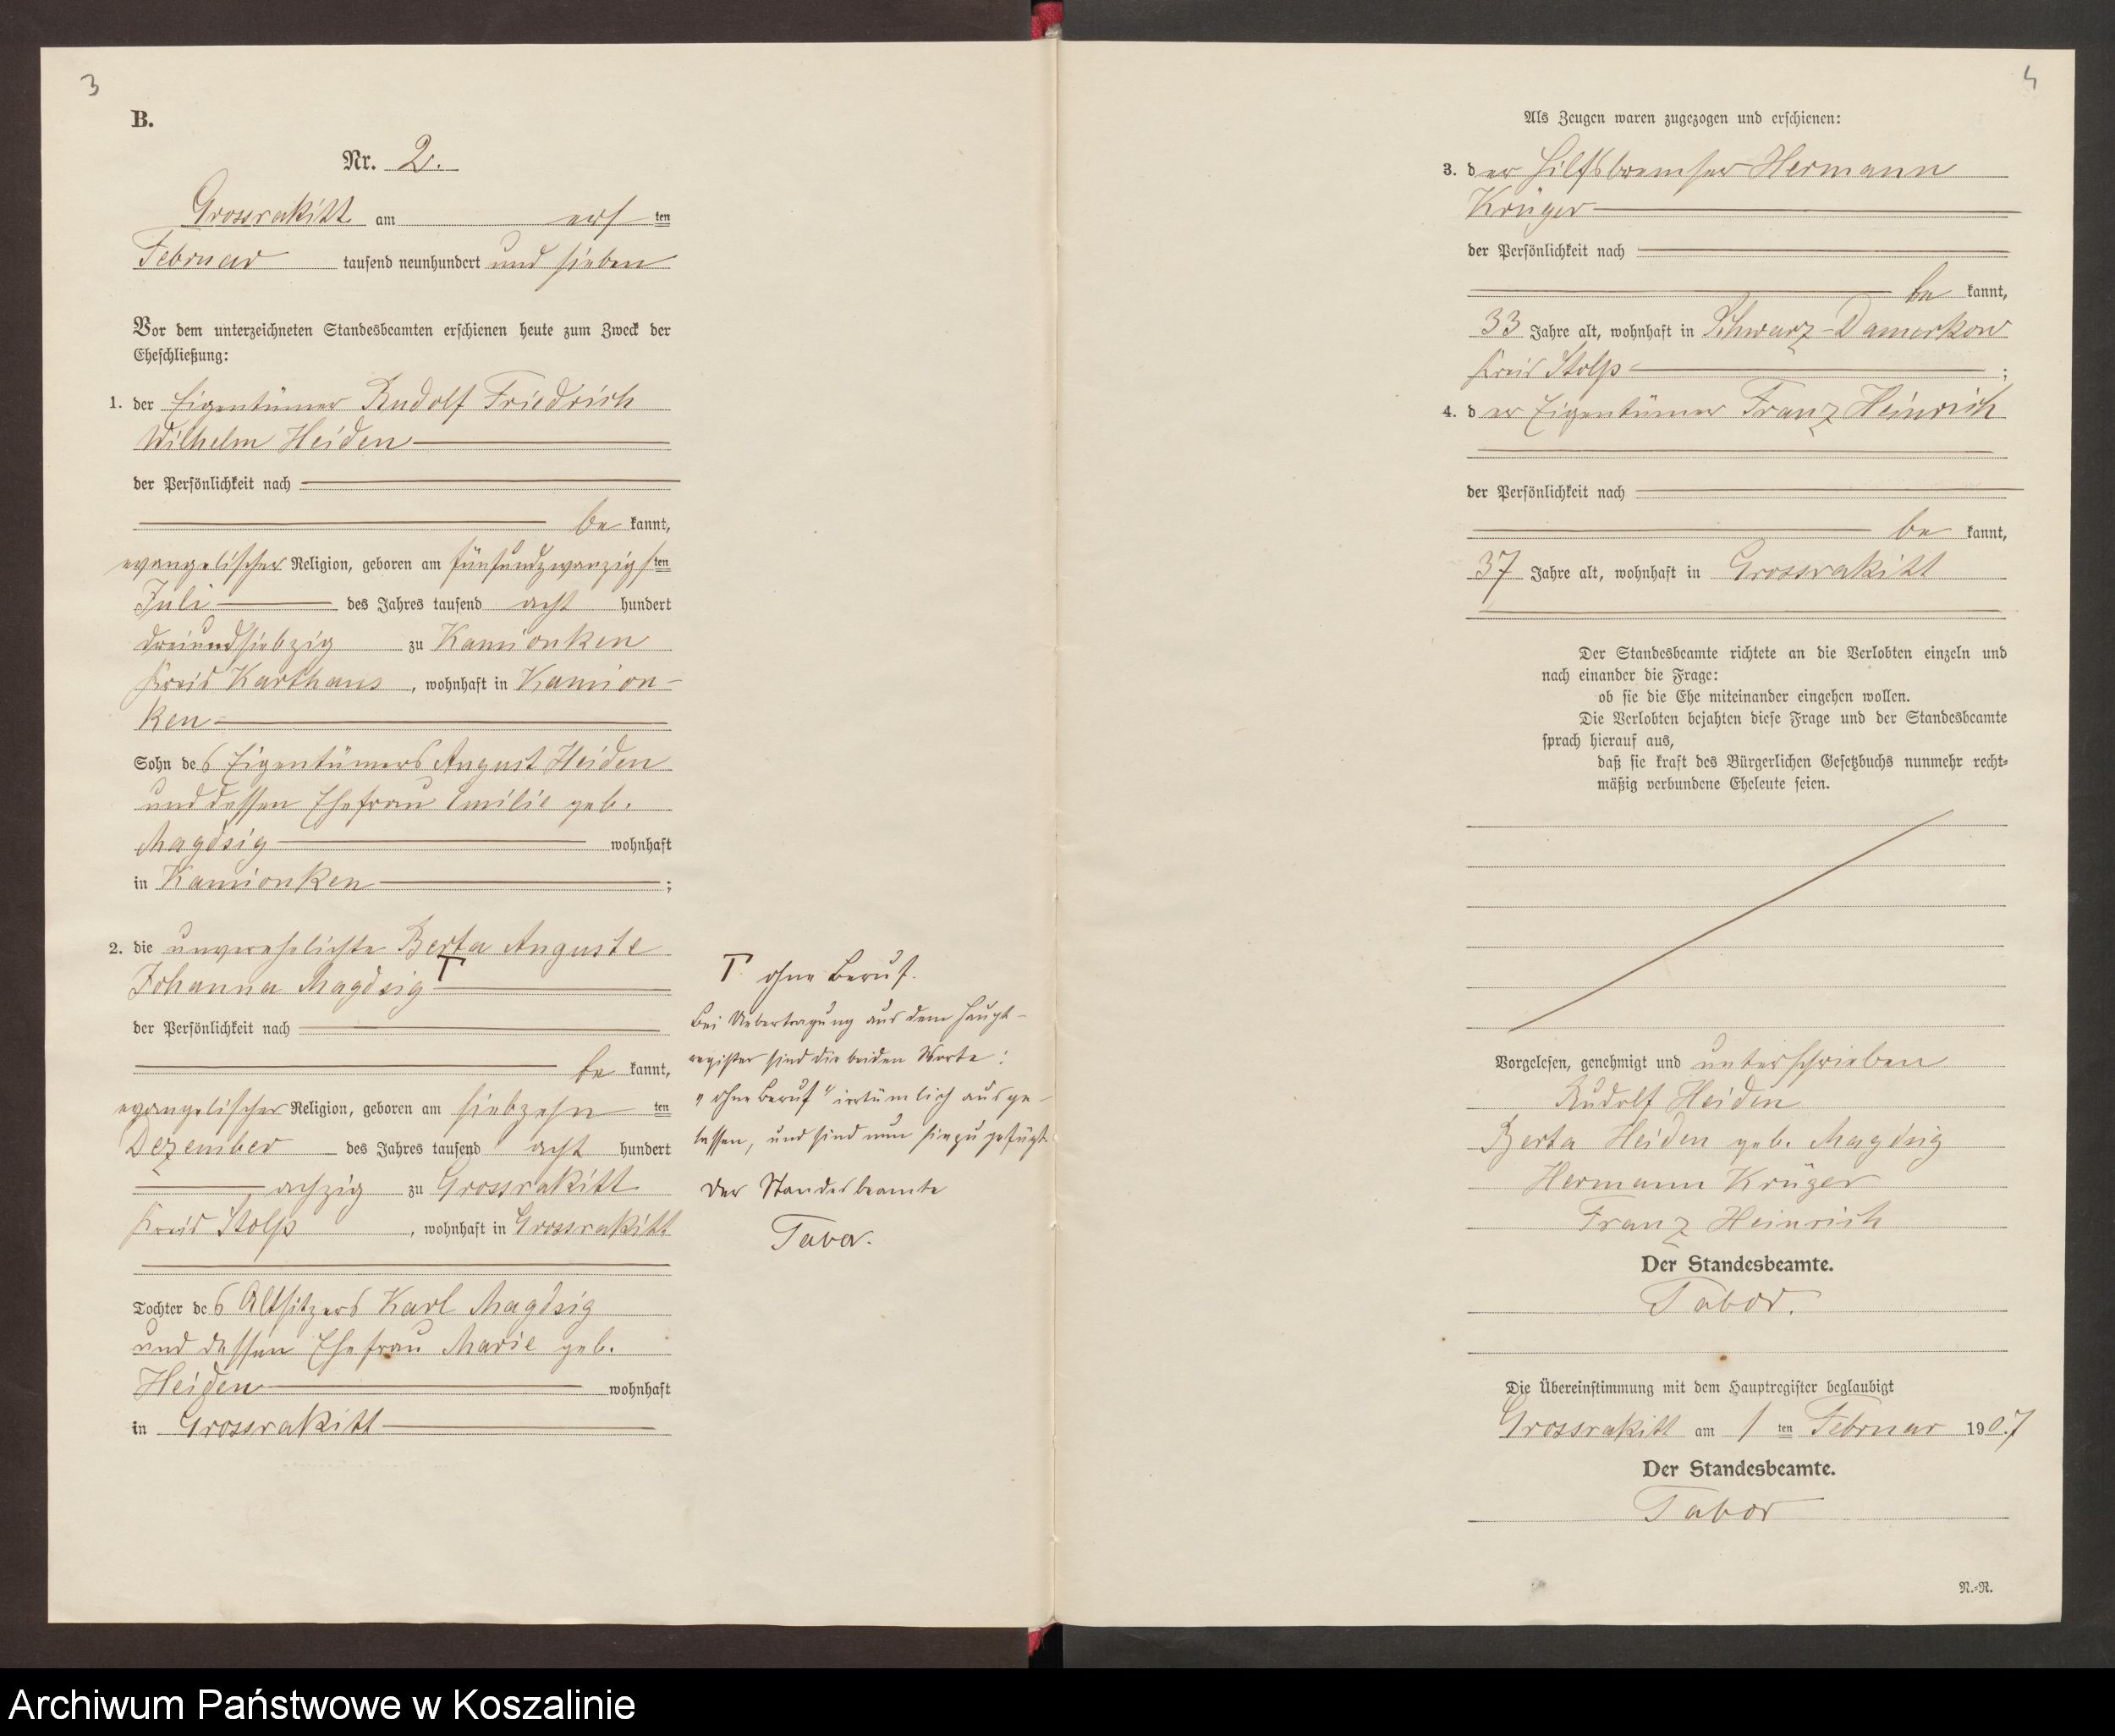 3
B.
Nr. 2.
Grossrakitt am ersten
Februar tausend neunhundert und sieben
Vor dem unterzeichneten Standesbeamten erschienen heute zum Zweck der
Eheschließung:
1. der Eigentümer Rudolf Friedrich
Wilhelm Heiden
der Persönlichkeit nach
be kannt,
evangelischer Religion, geboren am fünfundzwanzigsten
Juli des Jahres tausend acht hundert
dreiundsiebzig zu Kamionken
Kreis Karthaus, wohnhaft in Kamion-
ken
Sohn des Eigentümers August Heiden
und dessen Ehefrau Emilie geb.
Magdsig wohnhaft
in Kamionken;
2. die unverehelichte Berta Auguste
Johanna Magdsig T
der Persönlichkeit nach
be kannt,
evangelischer Religion, geboren am siebzehnten
Dezember des Jahres tausend acht hundert
achzig zu Grossrakitt
Kreis Stolp, wohnhaft in Grossrakitt
Tochter des Altsitzers Karl Magdsig
und dessen Ehefrau Marie geb.
Heiden wohnhaft
in Grossrakitt
T ohne Beruf.
Bei Uebertragung aus dem Haupt-
register sind die beiden Worte:
„ohne Beruf" irrtümlich ausge-
lassen, und sind nun hinzugefügt.
Der Standesbeamte
Tabor.
4
Als Zeugen waren zugezogen und erschienen:
3. der Hilfsbremser Hermann
Krüger
der Persönlichkeit nach
be kannt,
33 Jahre alt, wohnhaft in Schwarz-Damerkow
Kreis Stolp;
4. der Eigentümer Franz Heinrich
der Persönlichkeit nach
be kannt,
37 Jahre alt, wohnhaft in Grossrakitt
Der Standesbeamte richtete an die Verlobten einzeln und
nach einander die Frage:
ob sie die Ehe miteinander eingehen wollen.
Die Verlobten bejahten diese Frage und der Standesbeamte
sprach hierauf aus,
daß sie kraft des Bürgerlichen Gesetzbuchs nunmehr recht-
mäßig verbundene Eheleute seien.
Vorgelesen, genehmigt und unterschrieben
Rudolf Heiden
Berta Heiden geb. Magdsig
Hermann Krüger
Franz Heinrich
Der Standesbeamte.
Tabor.
Die Übereinstimmung mit dem Hauptregister beglaubigt
Grossrakitt am 1 ten Februar 1907
Der Standesbeamte.
Tabor
N.-N.
Archiwum Państwowe w Koszalinie